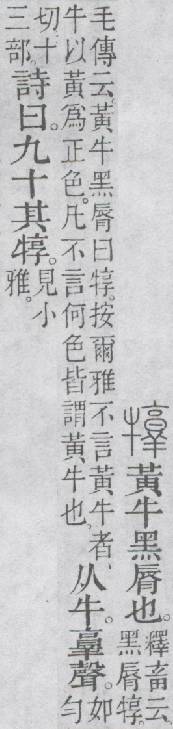 犉 黃牛黑脣也。釋畜云、
黑脣犉。
毛傳云、黃牛黑脣曰犉。按爾雅不言黃牛者、
牛以黃爲正色。凡不言何色皆謂黃牛也、
从牛。𦎫聲。如
勻
切、十
三部。
詩曰。九十其犉。見小
雅。